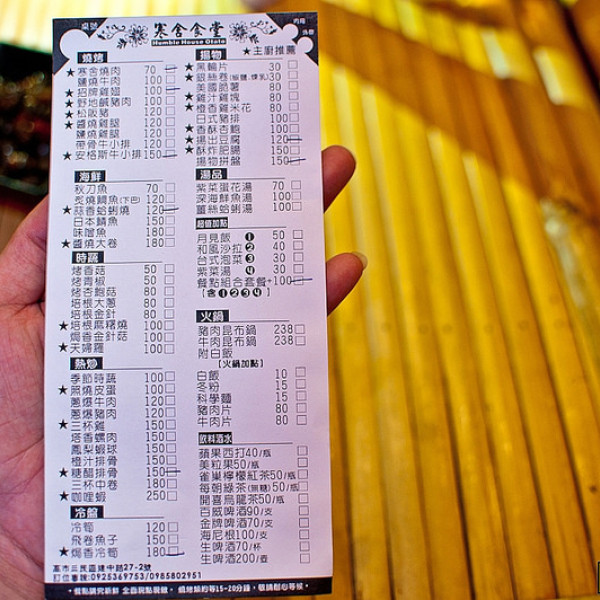 桌號
寒舍食堂
Humble House Ototo
內用
外帶
★主廚推薦
燒烤
★寒舍燒肉 70
鹽燒牛肉 100
★招牌雞翅 100
★野地鹹豬肉 100
★松阪豬 120
★醬燒雞腿 120
鹽燒雞腿 120
帶骨牛小排 150
★安格斯牛小排 150
海鮮
秋刀魚 70
炙燒鯛魚(下巴) 120
★蒜香蛤蜊燒 120
日本鯖魚 150
味噌魚 180
★醬燒大卷 180
時蔬
烤香菇 50
烤青椒 50
烤杏鮑菇 80
培根大蔥 80
培根金針 80
★培根麻糬燒 100
焗香金針菇 100
★天婦羅 100
熱炒
季節時蔬 100
★照燒皮蛋 100
蔥爆牛肉 120
蔥爆豬肉 120
★三杯雞 150
塔香螺肉 150
鳳梨蝦球 150
橙汁排骨 150
★糖醋排骨 150
三杯中卷 180
★咖哩蝦 250
冷盤
冷筍 120
飛卷魚子 150
★焗香冷筍 180
揚物
★黑輪片 30
★銀絲卷(椒鹽.煉乳) 30
美國脆薯 80
★雞汁雞塊 80
★橙香雞米花 80
日式豬排 100
★香酥杏鮑 100
★揚出豆腐 120
★酥炸肥腸 150
揚物拼盤 150
湯品
紫菜蛋花湯 70
深海鮮魚湯 100
薑絲蛤蜊湯 100
超值加點
月見飯❶ 50
和風沙拉❷ 40
台式泡菜❸ 30
紫菜湯❹ 30
餐點組合套餐+100
【含❶❷❸❹】
火鍋
豬肉昆布鍋 238
牛肉昆布鍋 238
附白飯
【火鍋加點】
白飯 10
冬粉 15
科學麵 15
豬肉片 80
牛肉片 80
飲料酒水
蘋果西打40/瓶
美粒果50/瓶
雀巢檸檬紅茶50/瓶
每朝綠茶(無糖)50/瓶
開喜烏龍茶50/瓶
百威啤酒90/支
金牌啤酒70/支
海尼根100/支
生啤酒70/杯
生啤酒200/壺
高市三民區建中路27-2號
訂位專線:0925369753/0985802951
•餐點講究新鮮 全面現點現做, 燒烤類約等15-20分鐘，敬請耐心等候•